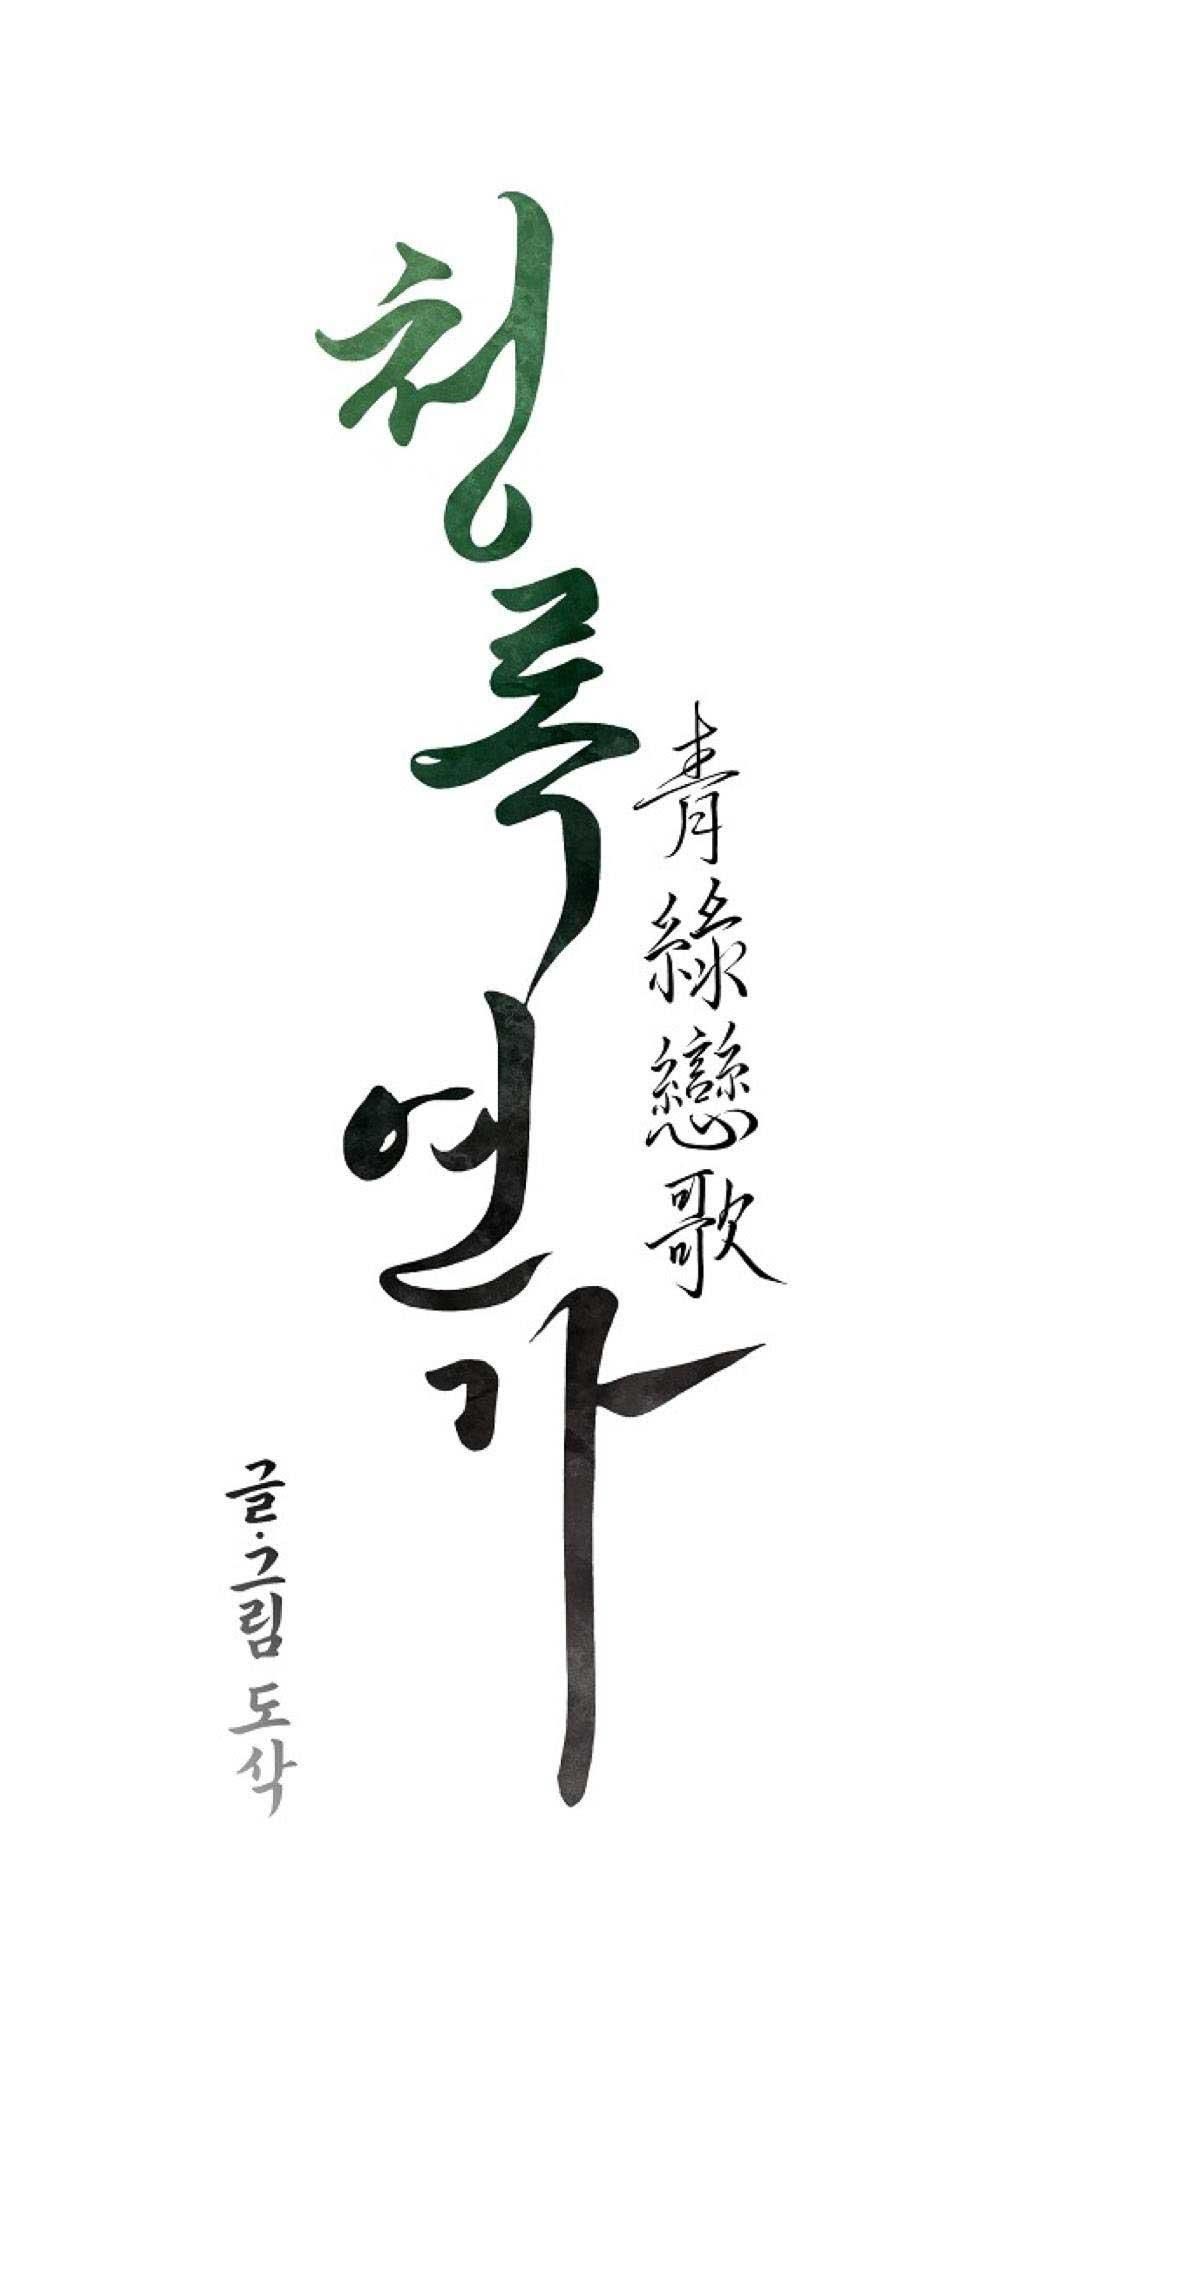 청록연가
靑綠戀歌
글·그림 도삭